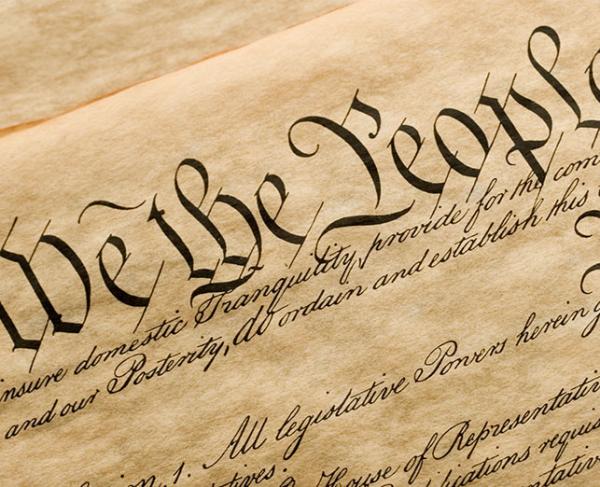 We the People
insure domestic Tranquility, provide for the com
and our Posterity, do ordain and establish this
1. All legislative Powers herein g
tives.
House of Representati
ications requis
ntative